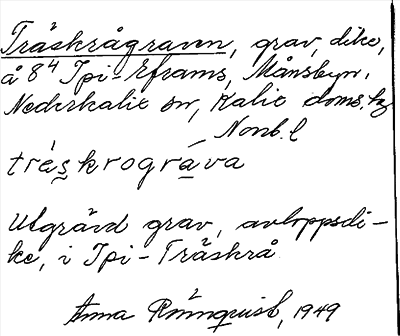 Träskrågraven, grav, dike,
å 8⁴ Ipi-Eframs, Månsbyn,
Nederkalix sn, Kalix doms. hg
Norrb. l
tréskrográva
Utgrävd grav, avloppsdi-
ke, i Ipi-Träskrå
Anna Rönnquist, 1949